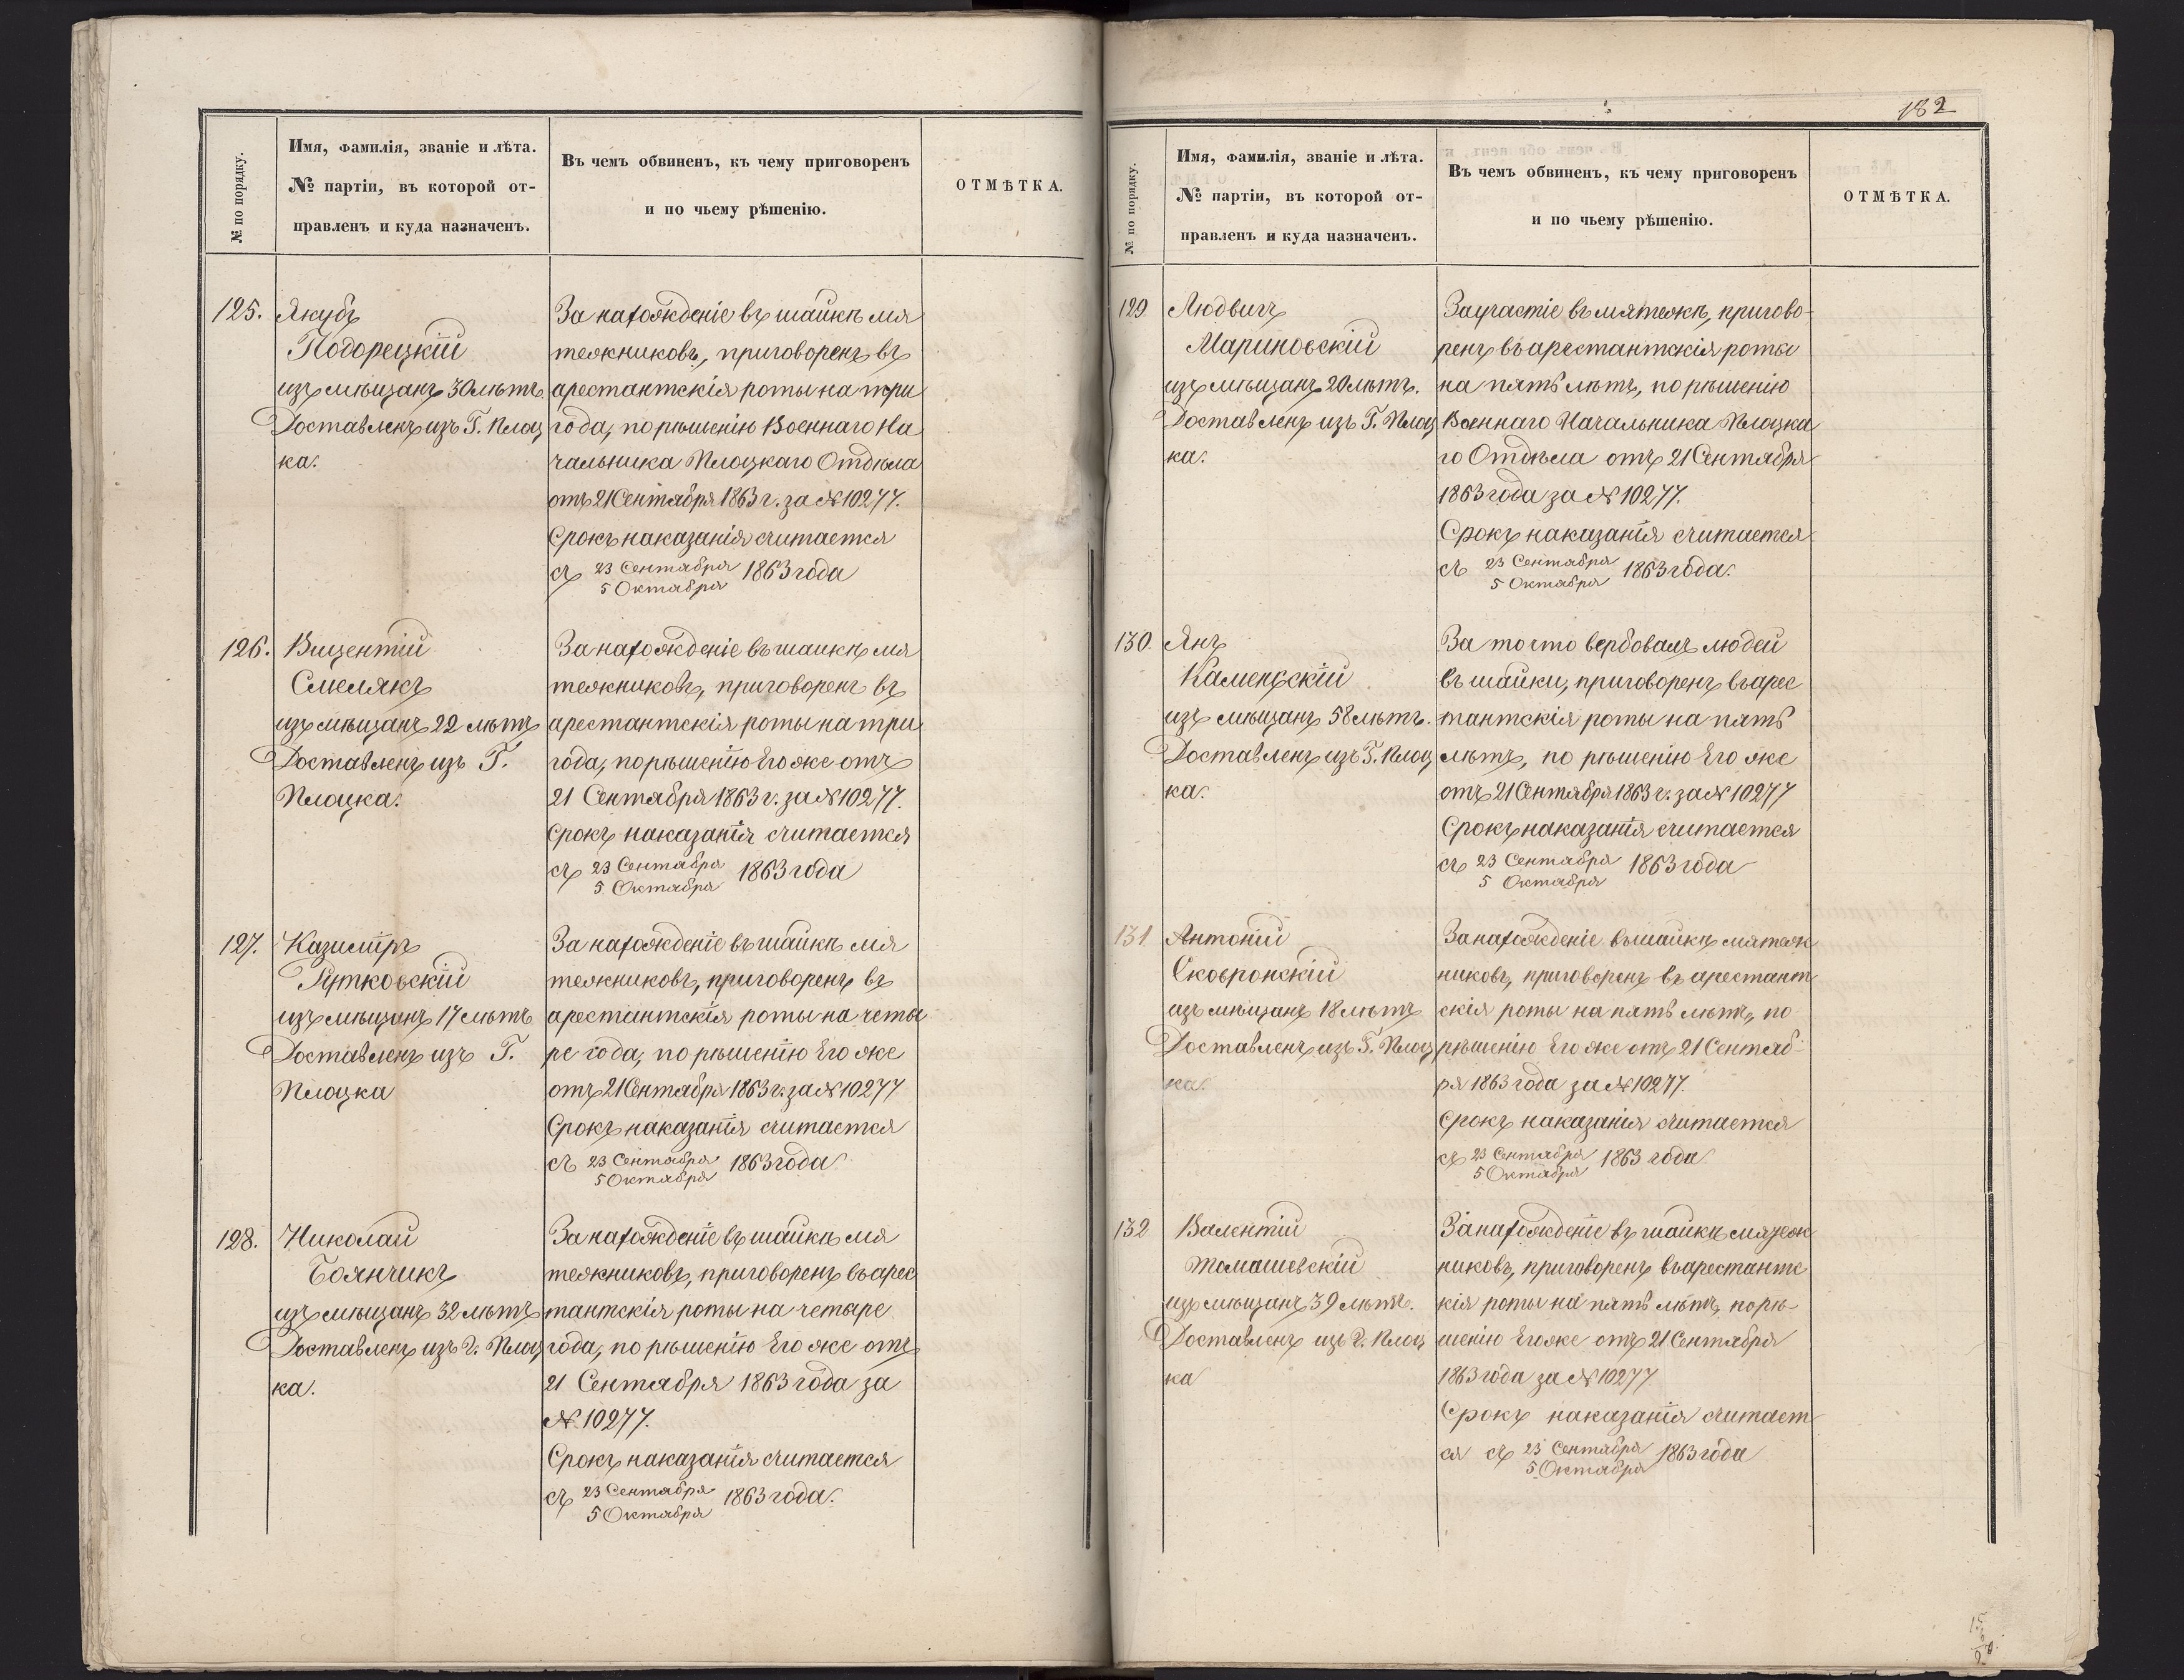 № по порядку.
Имя, фамилія, званіе и лѣта.
№ партіи, въ которой от-
правленъ и куда назначенъ.
Въ чемъ обвиненъ, къ чему приговоренъ
и по чьему рѣшенію.
ОТМѢТКА.
125.
Якубъ
Подорецкій
изъ мѣщанъ 30 лѣтъ.
Доставленъ изъ Г. Плоц
ка.
За нахожденіе въ шайкѣ мя
тежниковъ, приговоренъ въ
арестантскія роты на три
года, по рѣшенію Военнаго На
чальника Плоцкаго Отдѣла
отъ 21 Сентября 1863 г. за № 10277.
Срокъ наказанія считается
съ 23 Сентября 1863 года
5 Октября
126.
Вицентій
Смелякъ
изъ мѣщанъ 22 лѣтъ
Доставленъ изъ Г.
Плоцка.
За нахожденіе въ шайкѣ мя
тежниковъ, приговоренъ въ
арестантскія роты на три
года, по рѣшенію Его же отъ
21 Сентября 1863 г. за № 10277.
Срокъ наказанія считается
съ 23 Сентября 1863 года
5 Октября
127.
Казиміръ
Рутковскій
изъ мѣщанъ 17 лѣтъ
Доставленъ изъ Г.
Плоцка
За нахожденіе въ шайкѣ мя
тежниковъ, приговоренъ въ
арестантскія роты на четы
ре года, по рѣшенію Его же
отъ 21 Сентября 1863 г. за № 10277
Срокъ наказанія считается
съ 23 Сентября 1863 года.
5 Октября
128.
Николай
Боянчикъ
изъ мѣщанъ 32 лѣтъ
Доставленъ изъ г. Плоц
ка.
За нахожденіе въ шайкѣ мя
тежниковъ, приговоренъ въ арес
тантскія роты на четыре
года, по рѣшенію Его же отъ
21 Сентября 1863 года за
№ 10277.
Срокъ наказанія считается
съ 23 Сентября 1863 года.
5 Октября
182
№ по порядку.
Имя, фамилія, званіе и лѣта.
№ партіи, въ которой от-
правленъ и куда назначенъ.
Въ чемъ обвиненъ, къ чему приговоренъ
и по чьему рѣшенію.
ОТМѢТКА.
129.
Людвигъ
Мариновскій
изъ мѣщанъ 20 лѣтъ.
Доставленъ изъ Г. Плоц
ка.
За участіе въ мятежѣ, пригово-
ренъ въ арестантскія роты
на пять лѣтъ, по рѣшенію
Военнаго Начальника Плоцка
го Отдѣла отъ 21 Сентября
1863 года за № 10277.
Срокъ наказанія считается
съ 23 Сентября 1863 года.
5 Октября
130.
Янъ
Каменскій
изъ мѣщанъ 58 лѣтъ.
Доставленъ изъ Г. Плоц
ка.
За то что вербовалъ людей
въ шайки, приговоренъ въ арес
тантскія роты на пять
лѣтъ, по рѣшенію Его же
отъ 21 Сентября 1863 г. за № 10277
Срокъ наказанія считается
съ 23 Сентября 1863 года
5 Октября
131
Антоній
Сковронскій
изъ мѣщанъ 18 лѣтъ
Доставленъ изъ Г. Плоц
ка.
За нахожденіе въ шайкѣ мятеж
никовъ, приговоренъ въ арестант
скія роты на пять лѣтъ, по
рѣшенію Его же отъ 21 Сентяб-
ря 1863 года за № 10277.
Срокъ наказанія считается
съ 23 Сентября 1863 года.
5 Октября
132
Валентій
Томашевскій
изъ мѣщанъ 39 лѣтъ.
Доставленъ изъ г. Плоц
ка
За нахожденіе въ шайкѣ мятеж
никовъ, приговоренъ въ арестантс
кія роты на пять лѣтъ, по рѣ-
шенію Его же отъ 21 Сентября
1863 года за № 10277
Срокъ наказанія считает
ся съ 23 Сентября 1863 года
5 Октября